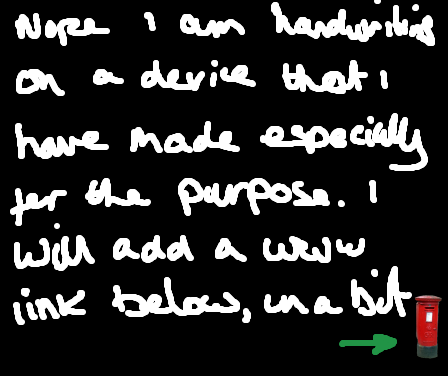 Nope I am handwriting
on a device that i
have made especially
for the purpose. I
will add a www
link below, in a bit